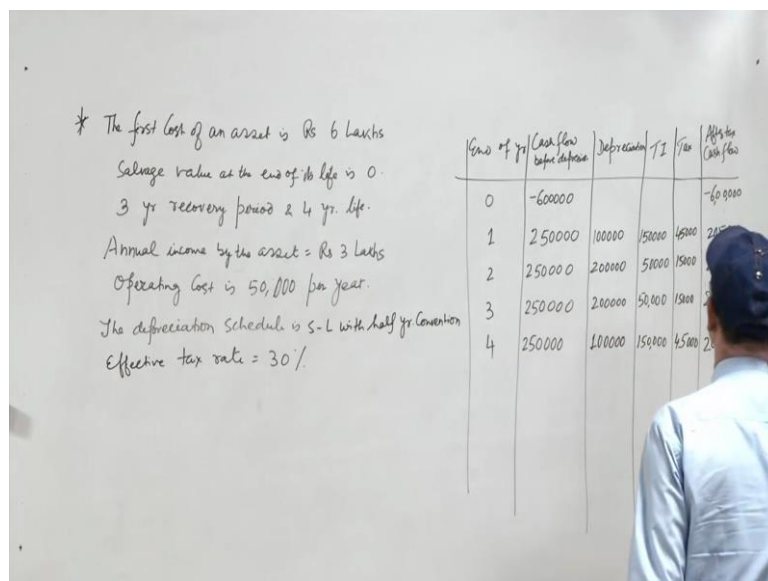 * The first Cost of an asset is Rs 6 Lakhs
Salvage value at the end of its life is 0.
3 yr recovery period & 4 yr. life.
Annual income by the asset = Rs 3 Lakhs
Operating Cost is 50,000 per year.
The depreciation schedule is S-L with half yr. Convention
Effective tax rate = 30%
End of yr Cash flow before deprecia Depreciation TI Tax After tax Cash flow
0 -600000 -6,00,000
1 250000 100000 150000 45000
2 250000 200000 50000 15000
3 250000 200000 50,000 15000
4 250000 100000 150,000 45000